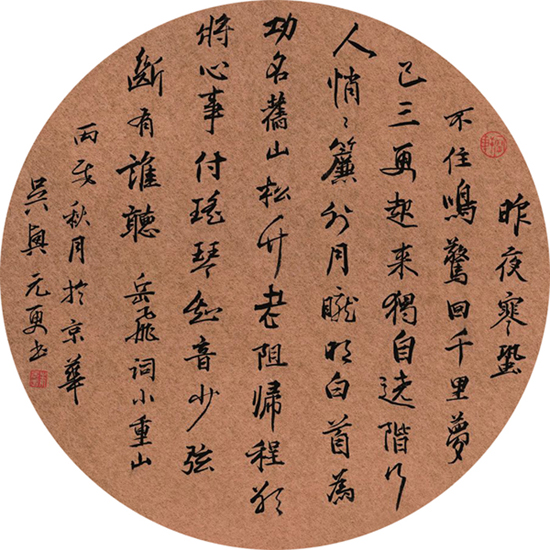 昨夜寒蛩
不住鳴驚回千里夢
已三更起來獨自遶階行
人悄〻簾外月朧明白首為
功名舊山松竹老阻歸程欲
將心事付瑤琴知音少弦
斷有誰聽 岳飛詞小重山
丙秋月於京華
吳興元更书